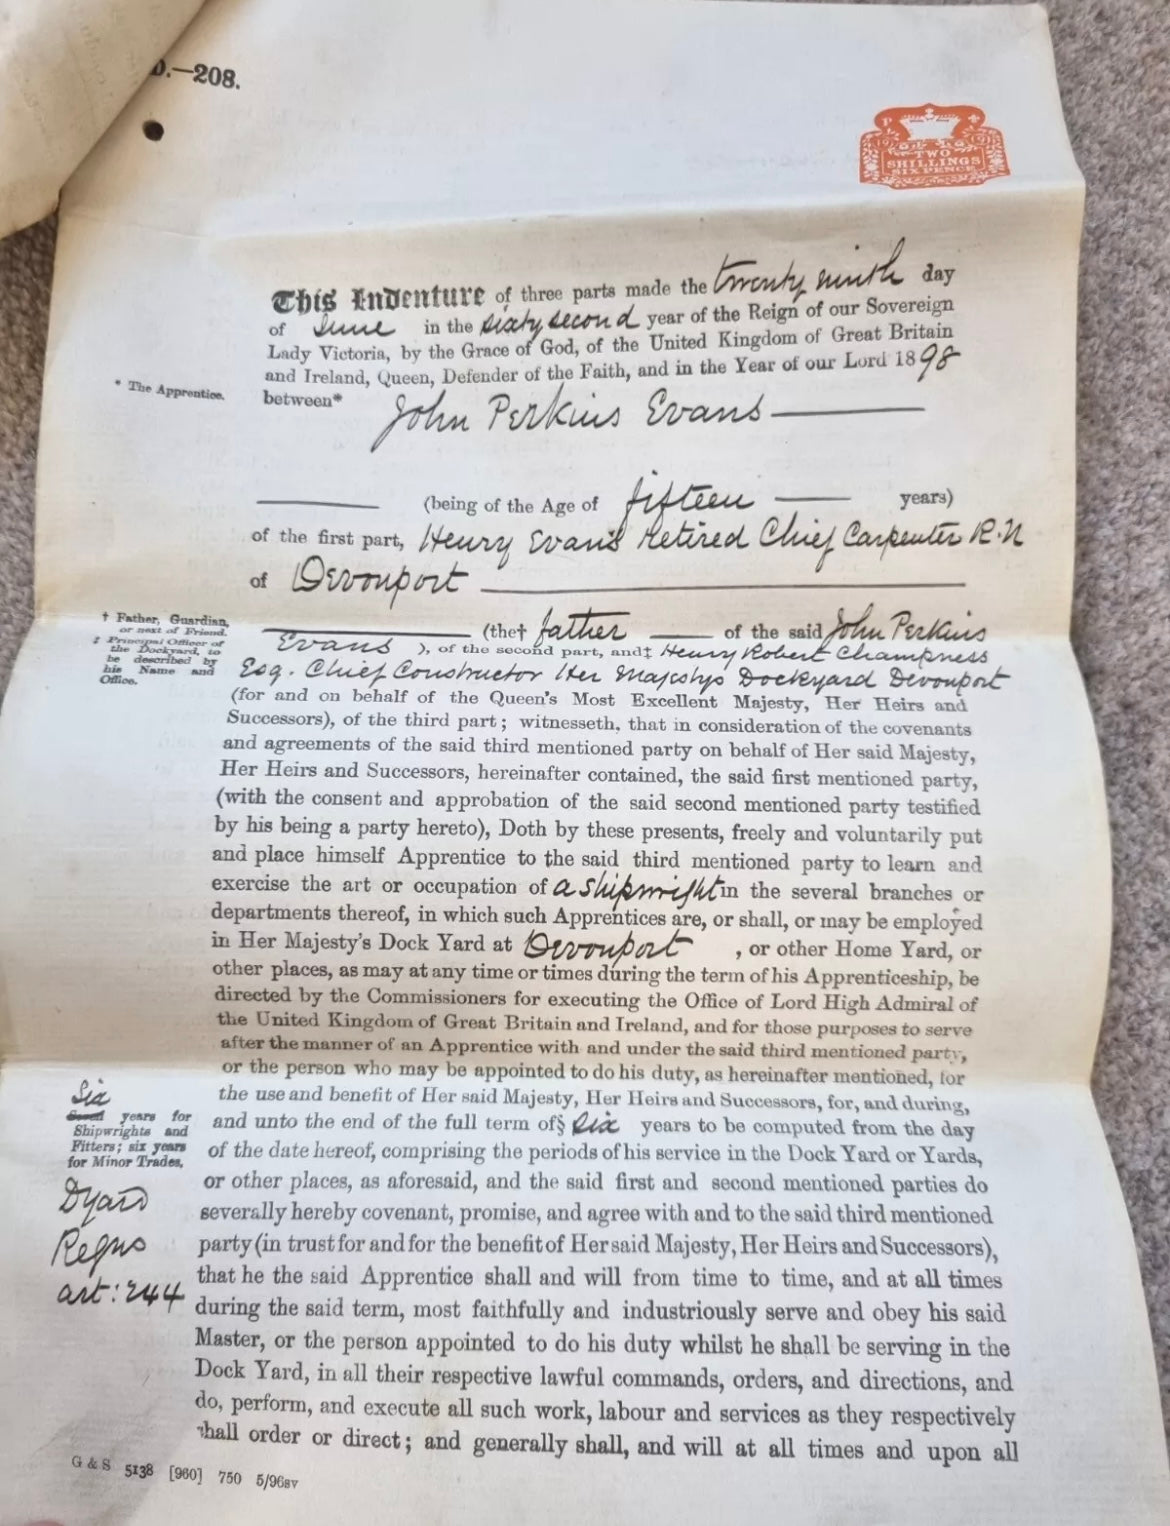 D.—208.
TWO
SHILLINGS
SIX PENCE
This Indenture of three parts made the twenty ninth day
of June in the sixty second year of the Reign of our Sovereign
Lady Victoria, by the Grace of God, of the United Kingdom of Great Britain
and Ireland, Queen, Defender of the Faith, and in the Year of our Lord 1898
* The Apprentice.
between* John Perkins Evans
(being of the Age of fifteen years)
of the first part, Henry Evans Retired Chief Carpenter R.N
of Devonport
† Father, Guardian,
or next of Friend.
‡ Principal Officer of
the Dockyard, to
be described by
his Name and
Office.
(the† father of the said John Perkins
Evans ), of the second part, and‡ Henry Robert Champness
Esq. Chief Constructor Her Majestys Dockyard Devonport
(for and on behalf of the Queen's Most Excellent Majesty, Her Heirs and
Successors), of the third part; witnesseth, that in consideration of the covenants
and agreements of the said third mentioned party on behalf of Her said Majesty,
Her Heirs and Successors, hereinafter contained, the said first mentioned party,
(with the consent and approbation of the said second mentioned party testified
by his being a party hereto), Doth by these presents, freely and voluntarily put
and place himself Apprentice to the said third mentioned party to learn and
exercise the art or occupation of a shipwright in the several branches or
departments thereof, in which such Apprentices are, or shall, or may be employed
in Her Majesty's Dock Yard at Devonport , or other Home Yard, or
other places, as may at any time or times during the term of his Apprenticeship, be
directed by the Commissioners for executing the Office of Lord High Admiral of
the United Kingdom of Great Britain and Ireland, and for those purposes to serve
after the manner of an Apprentice with and under the said third mentioned party,
or the person who may be appointed to do his duty, as hereinafter mentioned, for
the use and benefit of Her said Majesty, Her Heirs and Successors, for, and during,
and unto the end of the full term of§ Six years to be computed from the day
of the date hereof, comprising the periods of his service in the Dock Yard or Yards,
or other places, as aforesaid, and the said first and second mentioned parties do
severally hereby covenant, promise, and agree with and to the said third mentioned
party (in trust for and for the benefit of Her said Majesty, Her Heirs and Successors),
that he the said Apprentice shall and will from time to time, and at all times
during the said term, most faithfully and industriously serve and obey his said
Master, or the person appointed to do his duty whilst he shall be serving in the
Dock Yard, in all their respective lawful commands, orders, and directions, and
do, perform, and execute all such work, labour and services as they respectively
shall order or direct; and generally shall, and will at all times and upon all
Six
years for
Shipwrights and
Fitters; six years
for Minor Trades,
Dyard
Regns
art: 244
G & S 5138 [960] 750 5/96sv